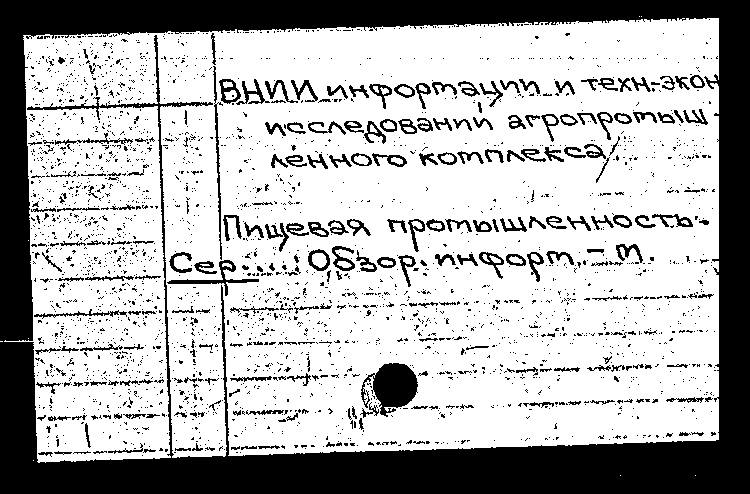 ВНИИ информации и техн.-экон
исследований агропромыш-
ленного комплекса/
Пищевая промышленность:
Сер..... Обзор. информ. - М.